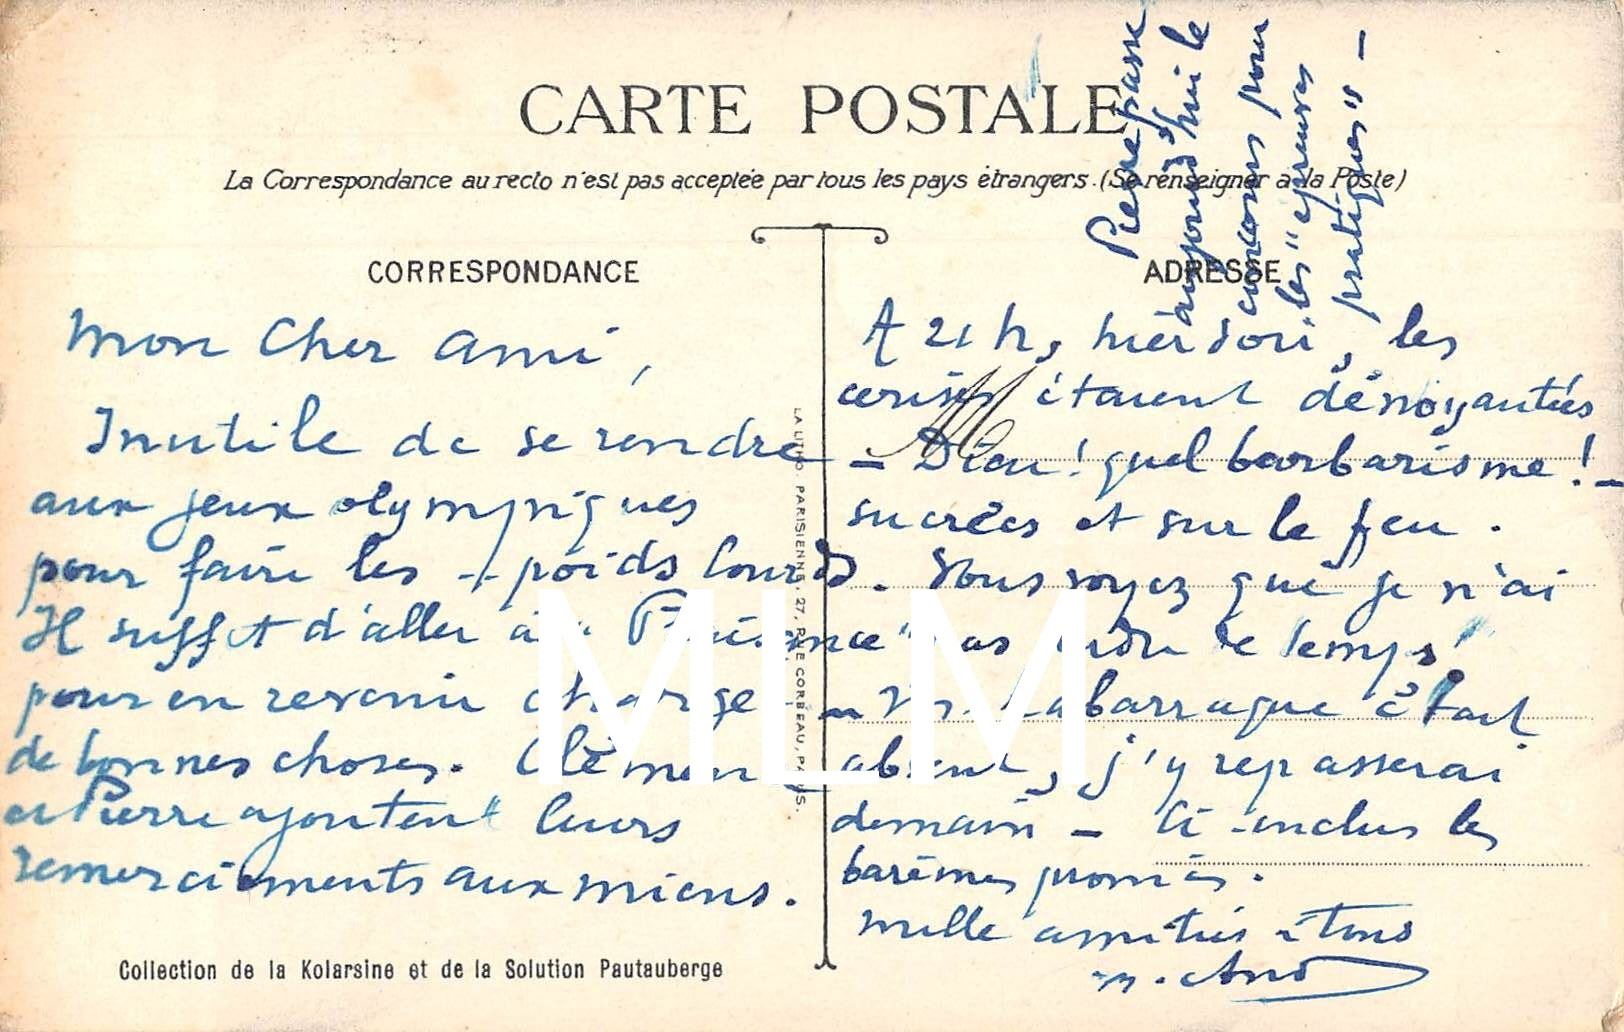 CARTE POSTALE
La Correspondance au recto n'est pas acceptée par tous les pays étrangers. (Se renseigner à la Poste)
CORRESPONDANCE
Mon Cher Ami,
Inutile de se rendre
aux jeux olympiques
pour faire les poids lourds.
Il suffit d'aller à
pour en revenir chargé
de bonnes choses. Clément
et Pierre ajoutent leurs
remerciements aux miens.
Collection de la Kolarsine et de la Solution Pautauberge
LA LITHO PARISIENNE, 27, RUE CORBEAU, PARIS.
ADRESSE
A 21 h, hier soir, les
cerises étaient dénoyautées
- Dieu! quel barbarisme! -
sucrées et sur le feu.
Vous voyez que je n'ai
pas perdu le temps!
- Mr Labarraque était
absent, j'y repasserai
demain - Ci-inclus les
barèmes promis.
Mille amitiés à tous
Pierre passe
aujourd'hui le
concours pour
les "épreuves
pratiques" -
MLM